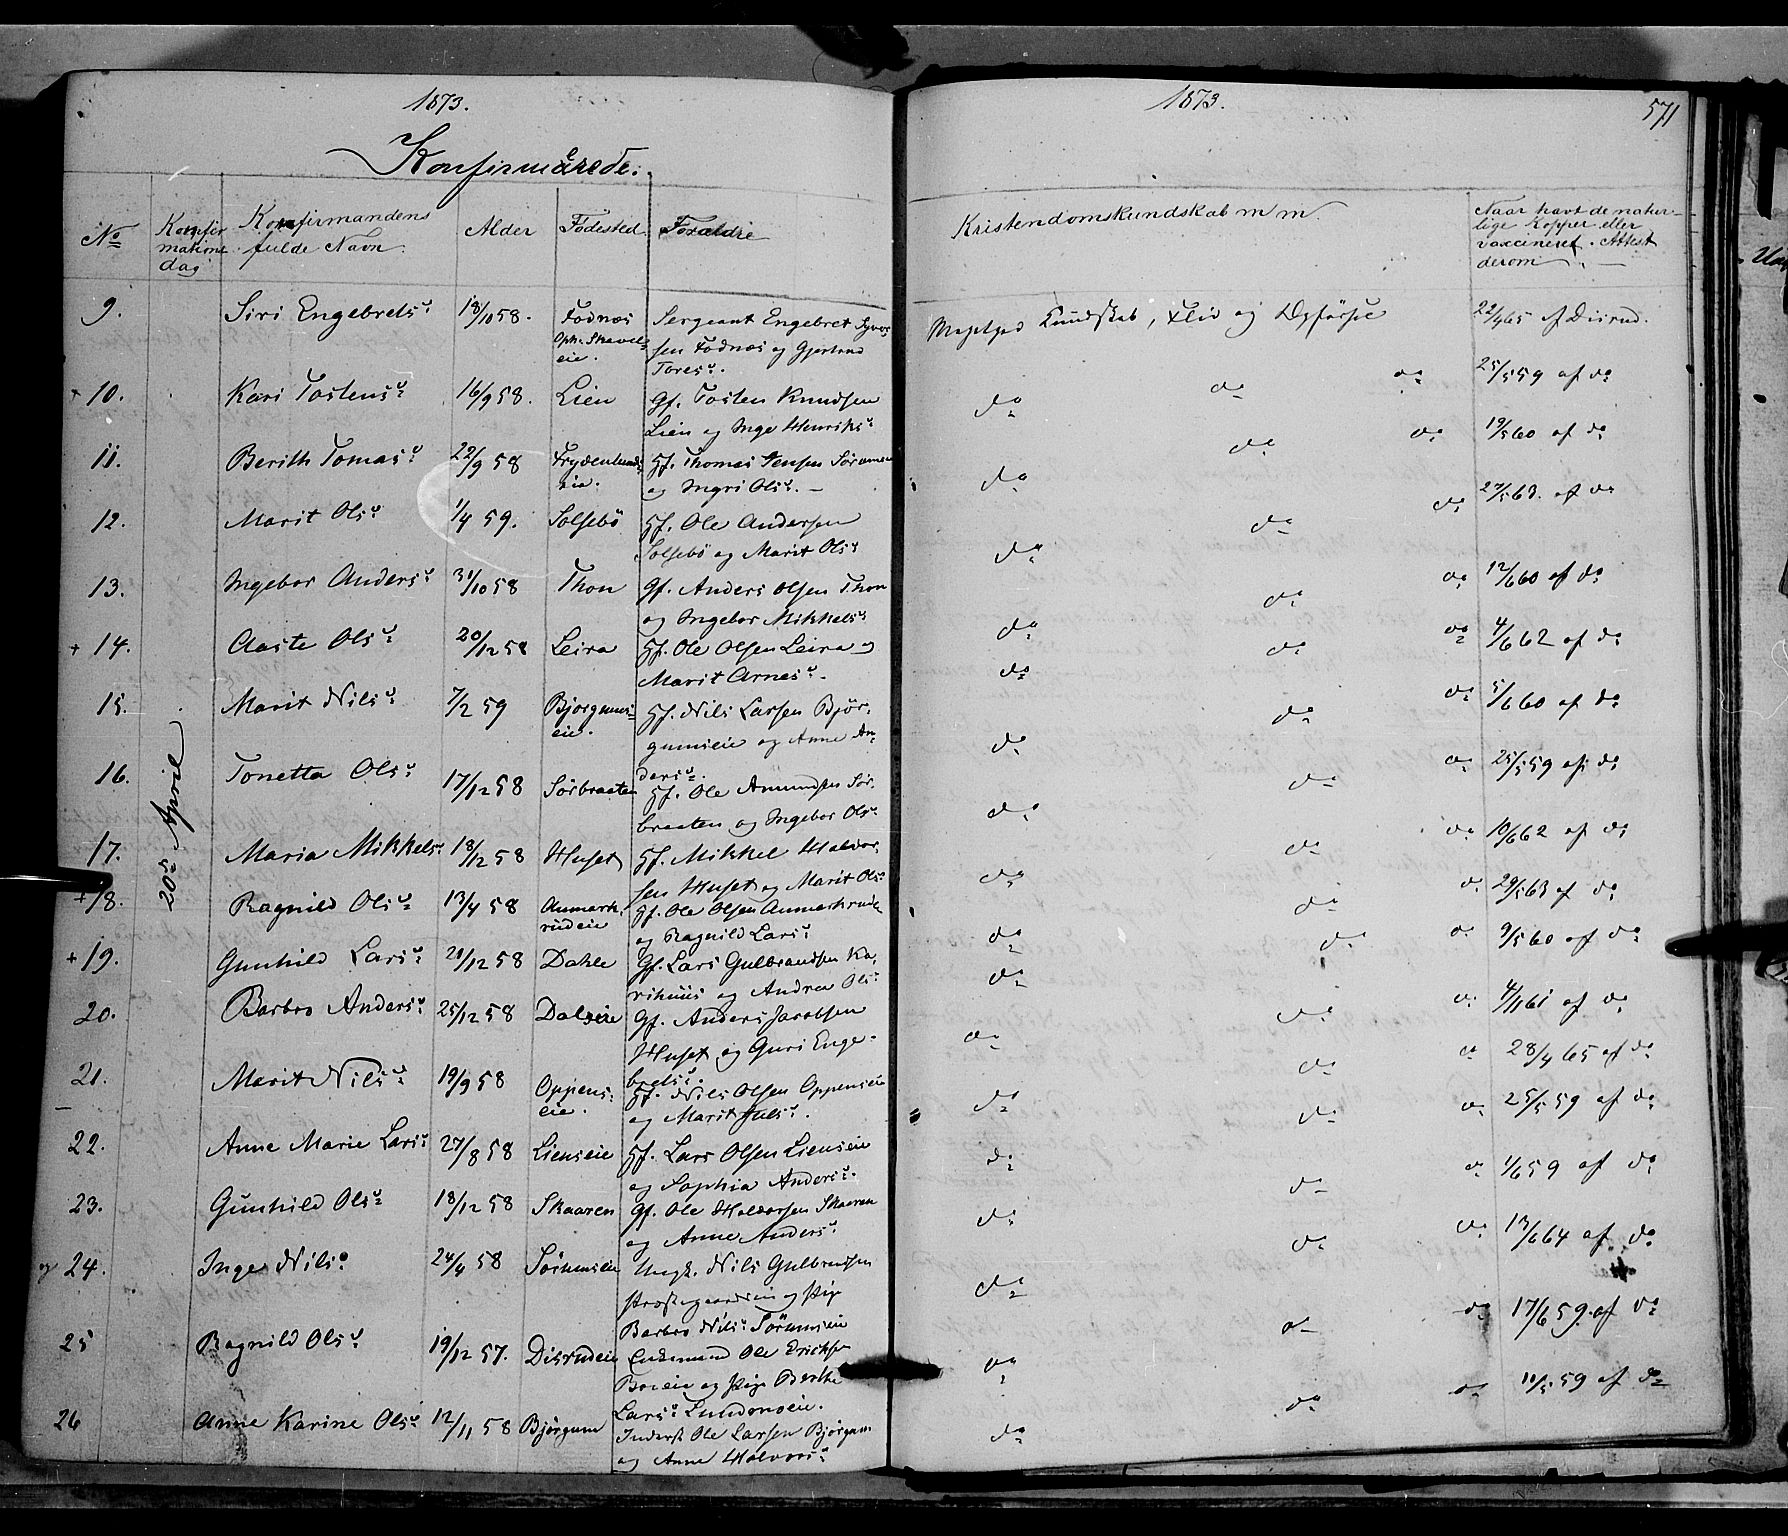 1873.
Konfirmerede.
No
Konfir
mations
dag
Konfirmandens
fulde Navn
Alder
Fødested
Forældre
9.
Siri Engebrets.
18/10 58.
Fodnæs
Oph. Skavels
eie.
Sergeant Engebret Syver
sen Fodnæs og Gjertrud
Tores.
10.
Kari Tostens.
16/9 58.
Lien
Gf. Tosten Knudsen
Lien og Inge Henriks.
11.
Berith Tomas.
22/9 58
Frydenlunds
eie.
Hf. Thomas Jensen
og Ingri Ols. —
12.
Marit Ols.
1/4 59.
Solsebö
Hf. Ole Andersen
Solsebö og Marit Ols.
13.
Ingebor Anders.
31/10 58
Thon
Gf. Anders Olsen Thon
og Ingebor Mikkels.
+ 14.
Aaste Ols.
20/12 58
Leira
Hf. Ole Olsen Leira og
Marit Arnes.
15.
Marit Nils.
7/2 59
Bjørgums
eie.
Hf. Nils Larsen Bjør-
gumseie og Anne An-
ders.
16.
Tonetta Ols.
17/12 58
Sörbraaten
Hf. Ole Amundsen Sör-
braaten og Ingebor Ols.
20de April
17.
Maria Mikkels.
18/12 58
Huset
Hf. Mikkel Halvor-
sen Huset og Marit Ols.
+ 18.
Ragnild Ols.
13/4 58
Aanmerk-
rudeie
Gf. Ole Olsen
og Ragnild Lars.
+ 19.
Gunhild Lars.
21/12 58
Dahle
Gf. Lars Gulbrandsen Ka-
rihuus og Andrea Ols.
20.
Barbro Anders.
25/12 58
Dalseie
Gf. Anders Jacobsen
Huset og Guri Enge-
brets.
21.
Marit Nils.
19/9 58
Oppens-
eie.
Hf. Nils Olsen Oppenseie
og Marit Juls.
22.
Anne Marie Lars.
27/8 58
Lienseie
Hf. Lars Olsen Lienseie
og Sophia Anders.
23.
Gunhild Ols.
18/12 58
Skaaren
Gf. Ole Halvorsen Skaaren
og Anne Anders.
24.
Inge Nils.
24/4 58
Sörumseie
Ungk. Nils Gulbrandsen
Præstegaardseie og Pige
Barbro Nils. Sörumseie
25
Ragnild Ols.
19/12 57.
Disrudeie
Enkemand Ole Eriksen
og Pige Berthe
Lars. Lundmoeie.
26
Anne Karine Ols.
12/11 58
Bjørgum
Inderst Ole Larsen Bjørgum
og Anne Halvors.
1873.
571
Kristendomskundskab m m.
Naar havt de natur-
lige Kopper eller
vaccineret. Attest
derom —
Meget god Kundskab, Flid og Opførsel
22/4 65 af Disrud.
do do do 25/5 59 af do
do do do 19/5 60 af do
do do do 27/5 63. af do
do do do 12/6 60 af do
do do do 4/6 62 af do
do do do 5/6 60 af do
do do do 25/5 59 af do
do do do 10/6 62 af do
do do do 29/5 63 af do
do do do 9/5 60 af do
do do do 4/11 61 af do
do do do 28/4 65 af do
do do do 25/5 59 af do
do do do 1/6 59 af do
do do do 13/6 64 af do
do do do 17/6 59. af do
do do do 11/5 59 af do